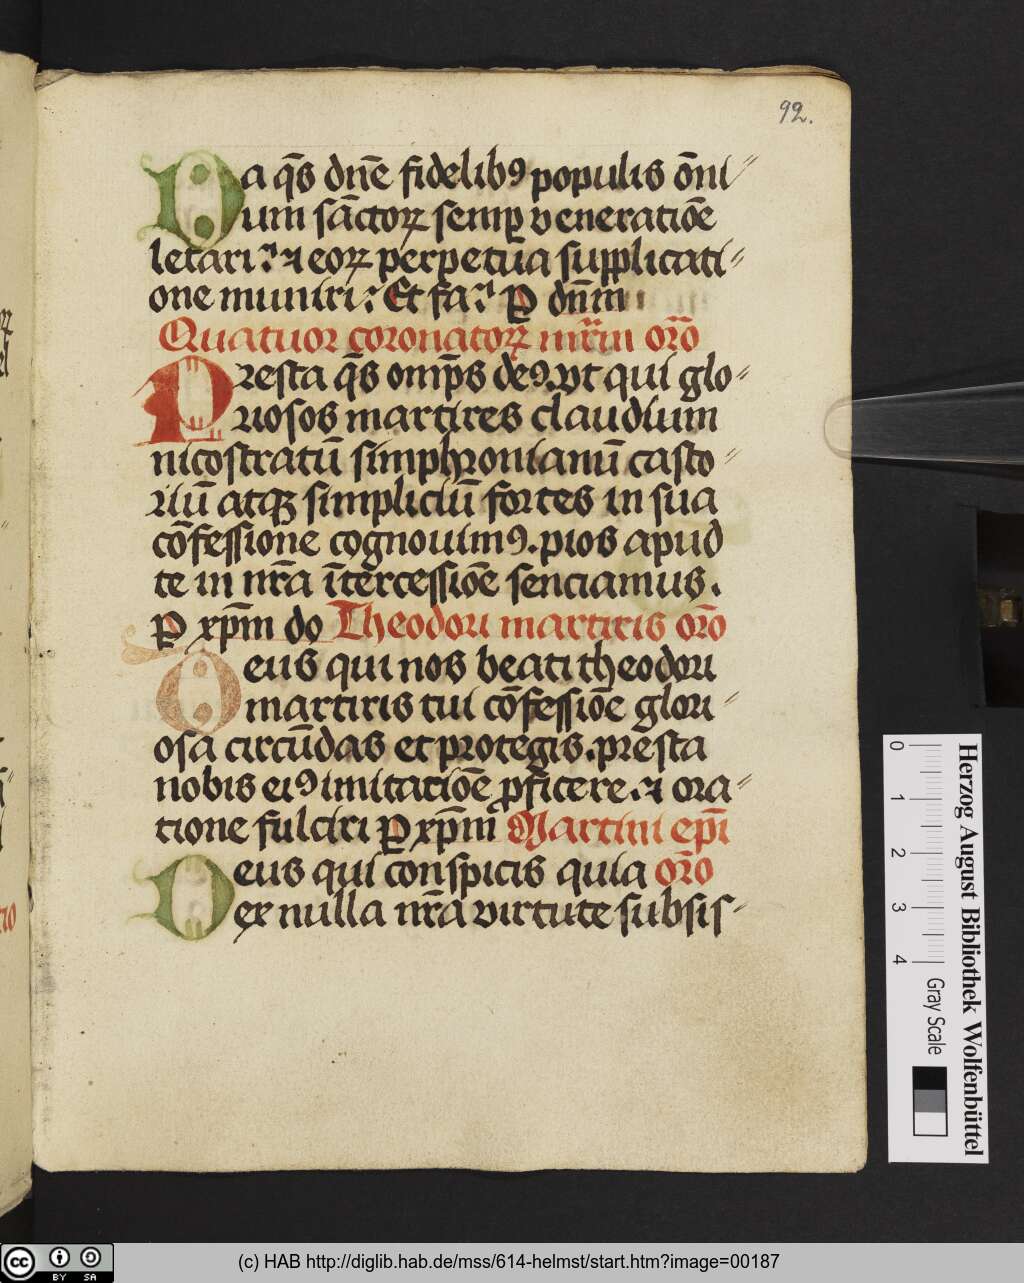 92.
Da q̄s dn̄e fidelibꝯ populis ōni
um sāctoꝝ semꝑ veneratiōe
letari: ⁊ eoꝝ perpetua supplicati-
one muniri: Et fa: P dn̄m
Quatuor coronatoꝝ mr̄m or̄o
Presta q̄s omp̄s deꝯ. vt qui glo-
riosos martires claudium
nicostratū simphronianū casto
riū atqꝫ simpliciū fortes in sua
cōfessione cognouimꝯ. pios apud
te in nr̄a ītercessiōe senciamus.
P xp̄m do Theodori martiris or̄o
Deus qui nos beati theodori
martiris tui cōfessiōe glori
osa circūdas et protegis. presta
nobis eiꝯ imitatiōe ꝓficere. ⁊ ora
tione fulciri P xp̄m Martini ep̄i
Deus qui conspicis quia or̄o
ex nulla nr̄a virtute subsis-
Herzog August Bibliothek Wolfenbüttel
0 1 2 3 4 Gray Scale
cc BY SA
(c) HAB http://diglib.hab.de/mss/614-helmst/start.htm?image=00187